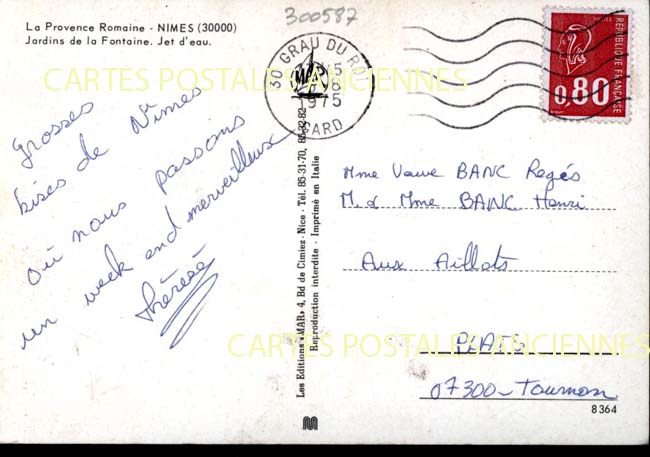 300587
La Provence Romaine - NIMES (30000)
Jardins de la Fontaine. Jet d'eau.
CARTES POSTALES ANCIENNES
30 GRAU DU ROI
1975
GARD
0,80
REPUBLIQUE FRANCAISE
Grosses
bises de Nîmes
où nous passons
un week end merveilleux
Thérèse
Les Editions «MAR» 4, Bd de Cimiez - Nice - Tél. 85-31-70, 85-32-82
Reproduction interdite - Imprimé en Italie
Mme Veuve BANC Regés
M. & Mme BANC Henri
Aux Aillots
PLATS
CARTES POSTALES ANCIENNES
07300 - Tournon
8364
M